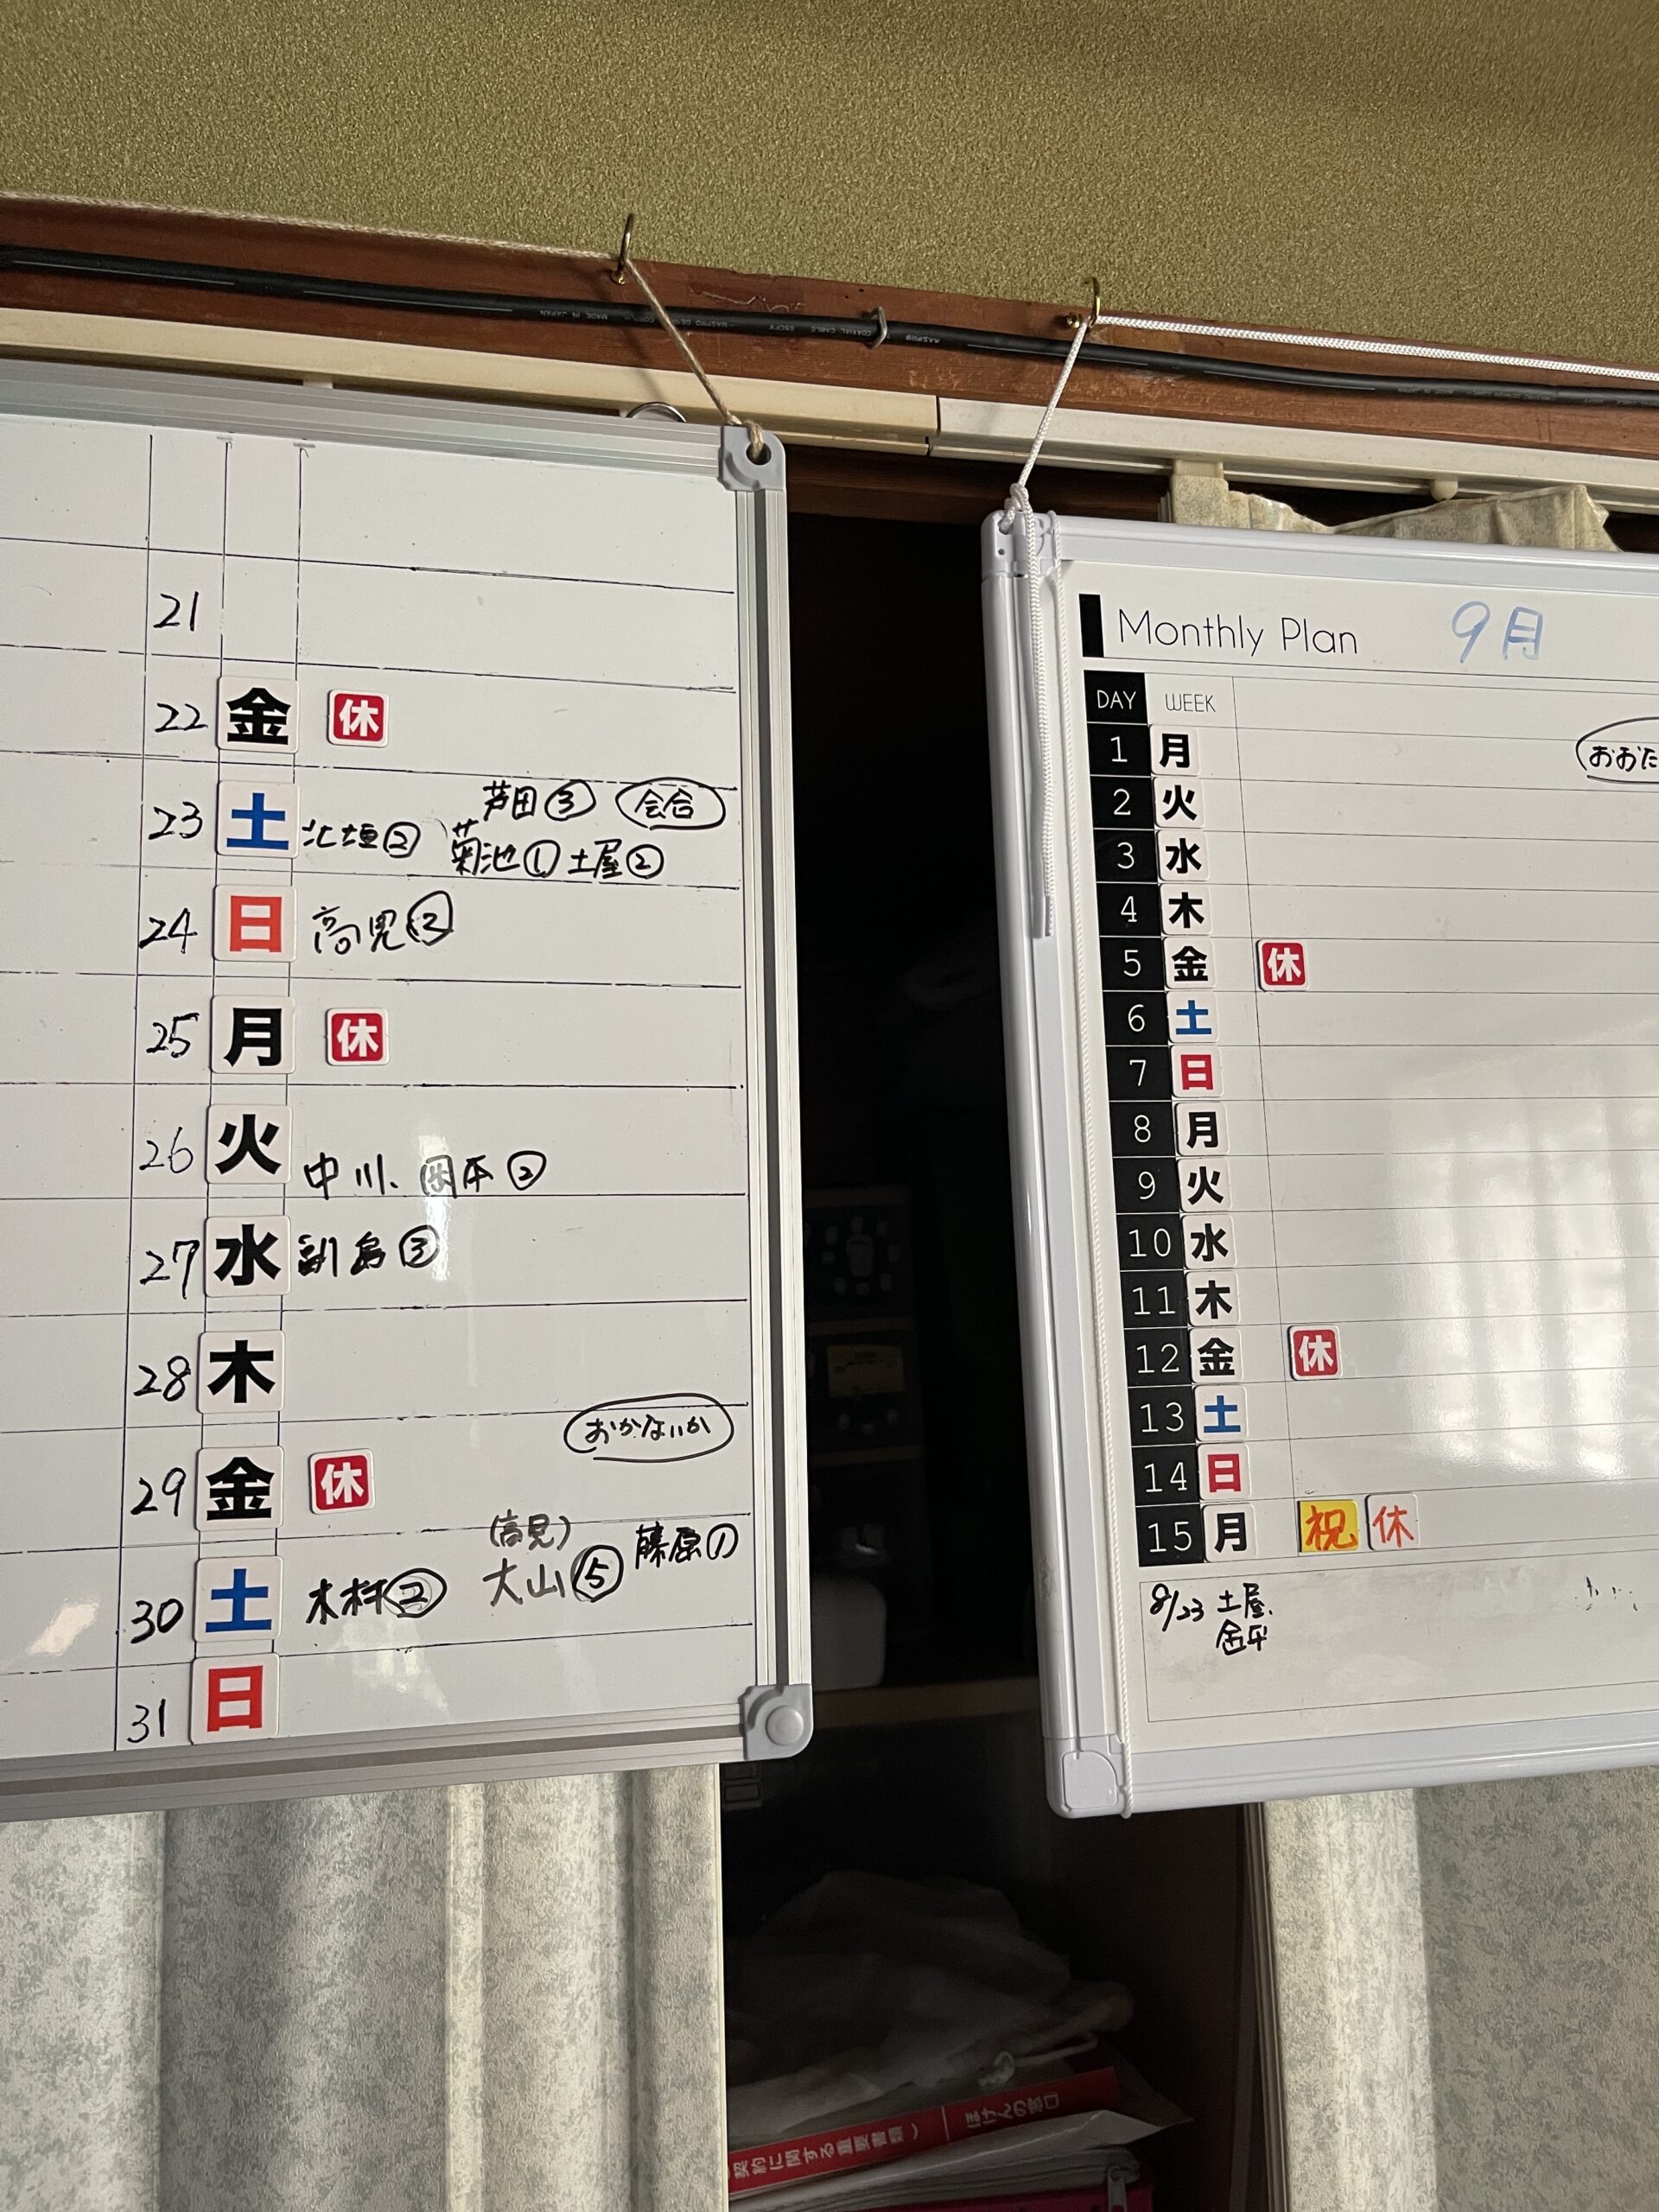 MADE IN JAPAN
COAXIAL CABLE
MASPRO
21
22 金 休
23 土 北垣② 芦田③ 会合
菊池① 土屋②
24 日 高見②
25 月 休
26 火 中川、岡本②
27 水 副島③
28 木
おかないか
29 金 休
30 土 木村② (高見) 大山⑤ 藤原①
31 日
Monthly Plan 9月
DAY WEEK
1 月 おおた
2 火
3 水
4 木
5 金 休
6 土
7 日
8 月
9 火
10 水
11 木
12 金 休
13 土
14 日
15 月 祝 休
8/23 土屋、
契約に関する重要書類 ほけんの窓口